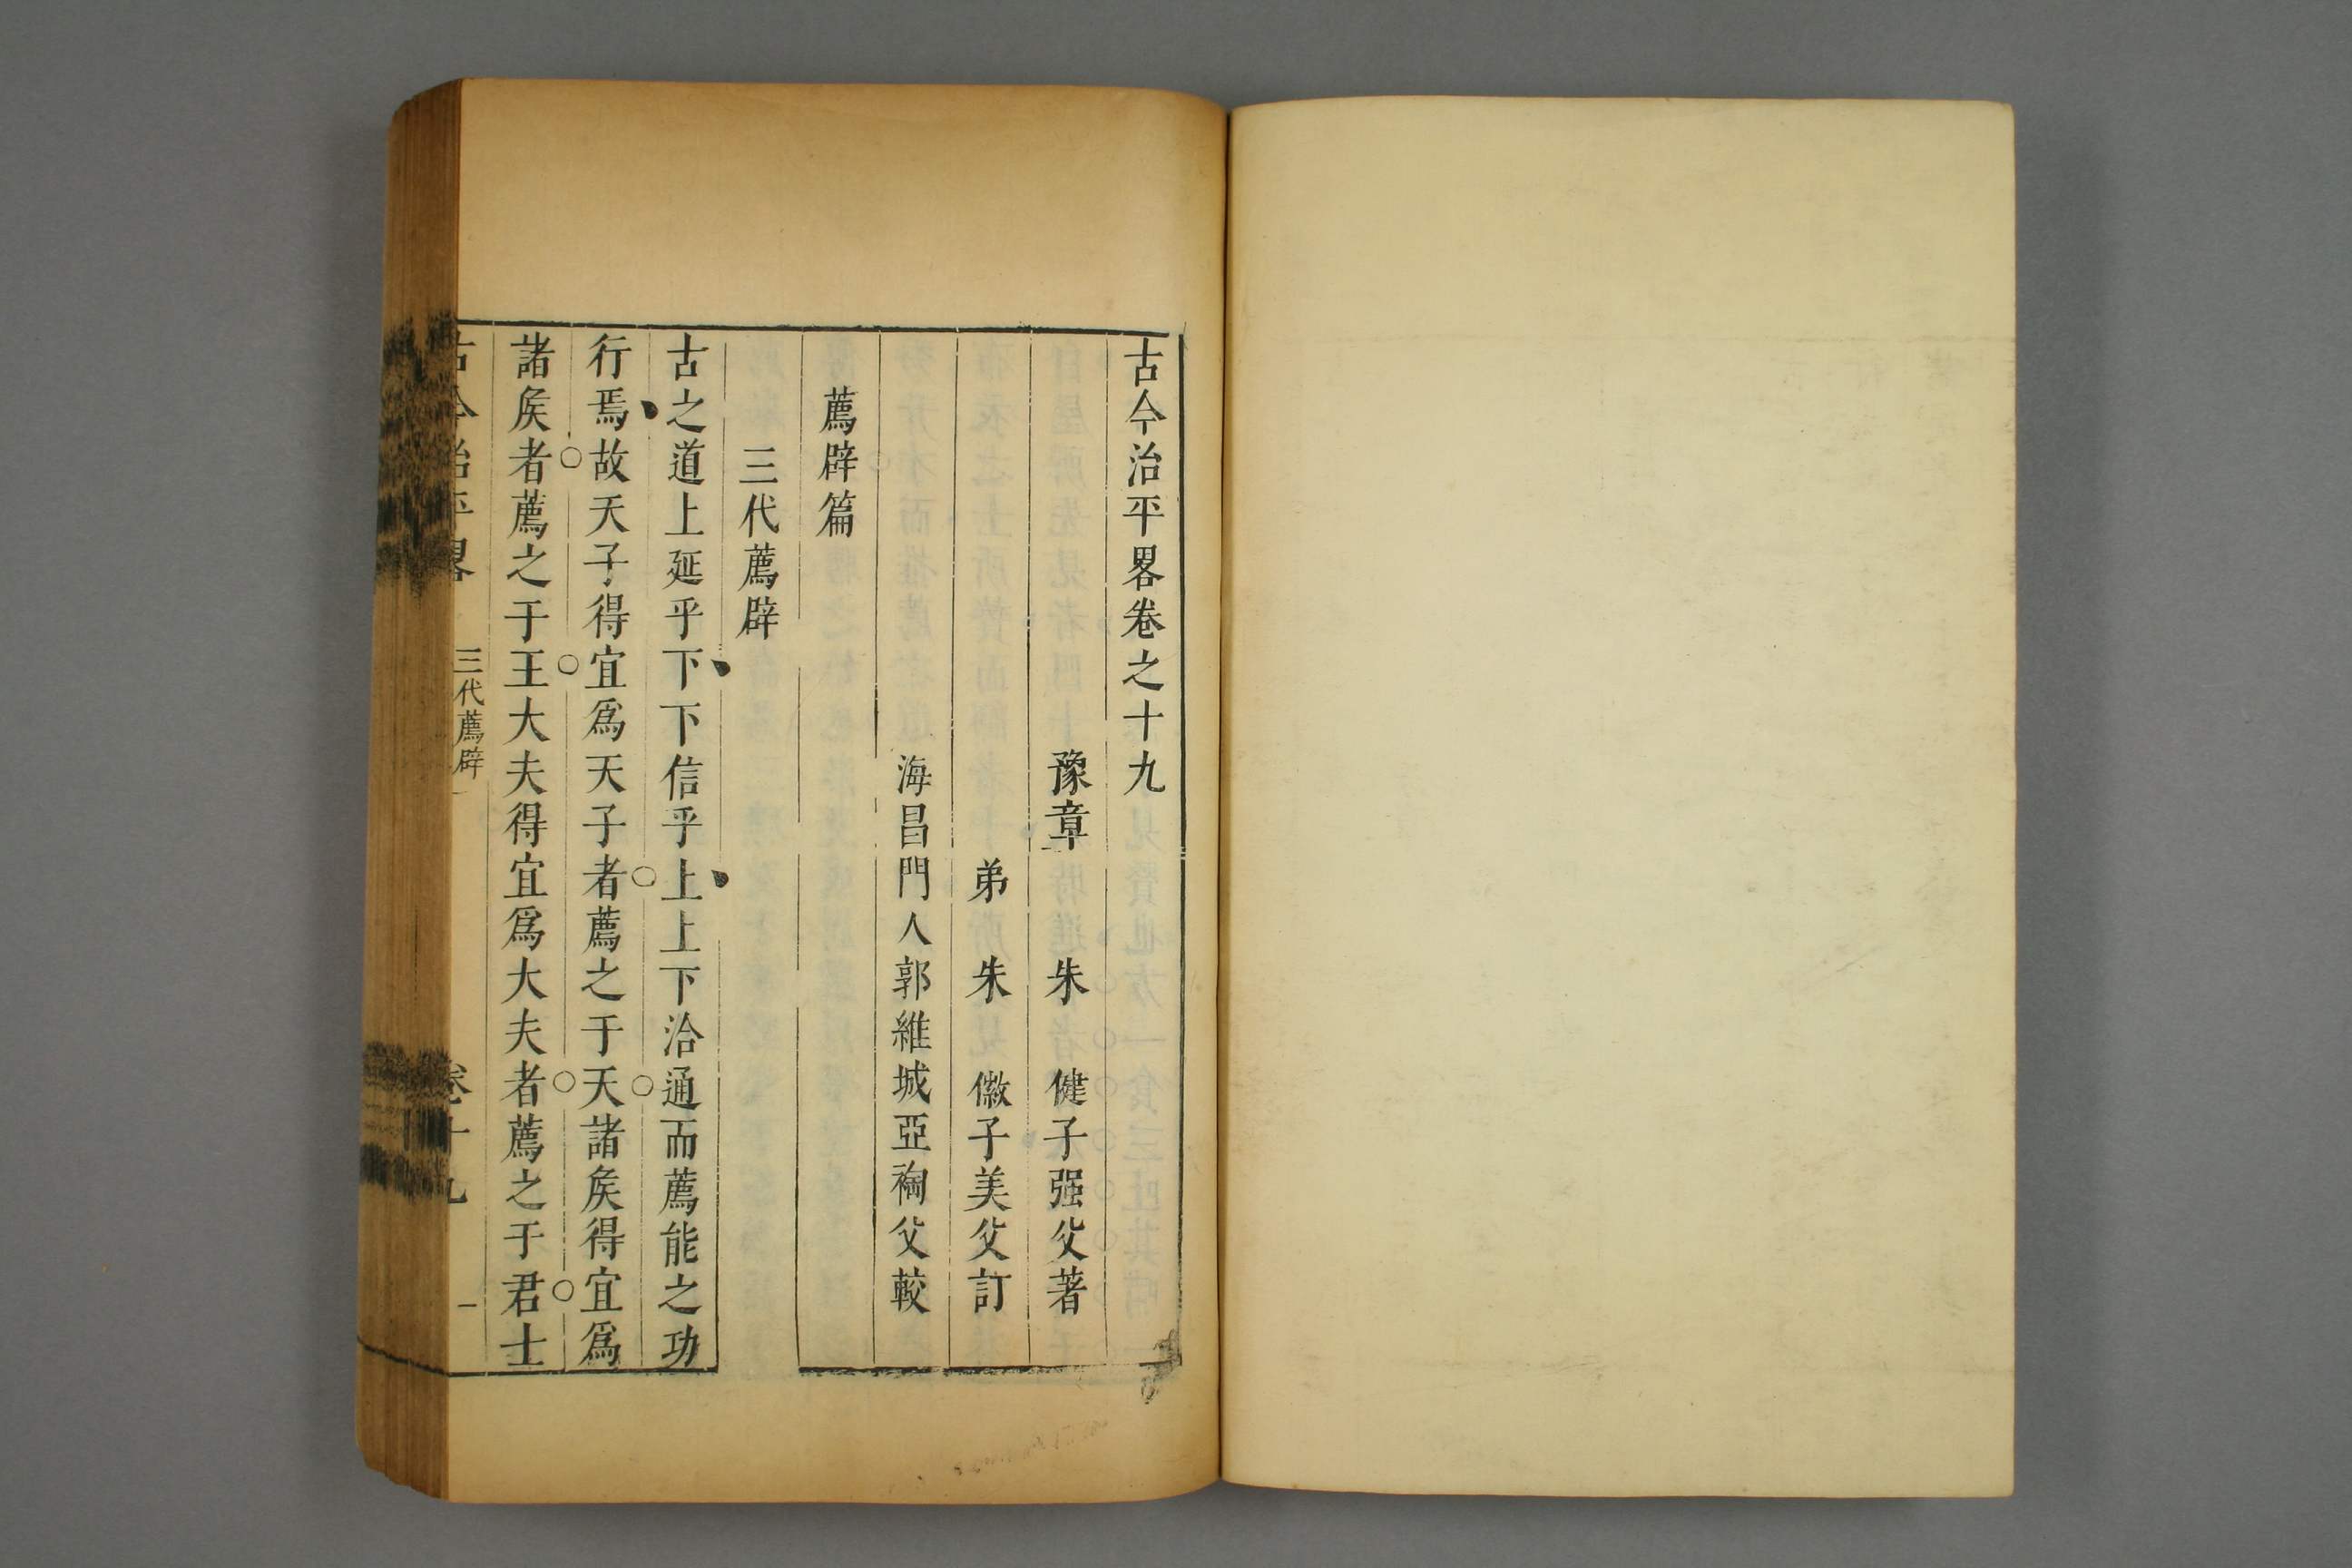 古今治平畧卷之十九
豫章　朱　健子强父著
弟　朱　徽子美父訂
海昌門人郭維城亞裪父較
薦辟篇
三代薦辟
古之道上延乎下下信乎上上下洽通而薦能之功
行焉故天子得宜爲天子者薦之于天諸矦得宜爲
諸矦者薦之于王大夫得宜爲大夫者薦之于君士
古今治平畧　三代薦辟　卷十九　一